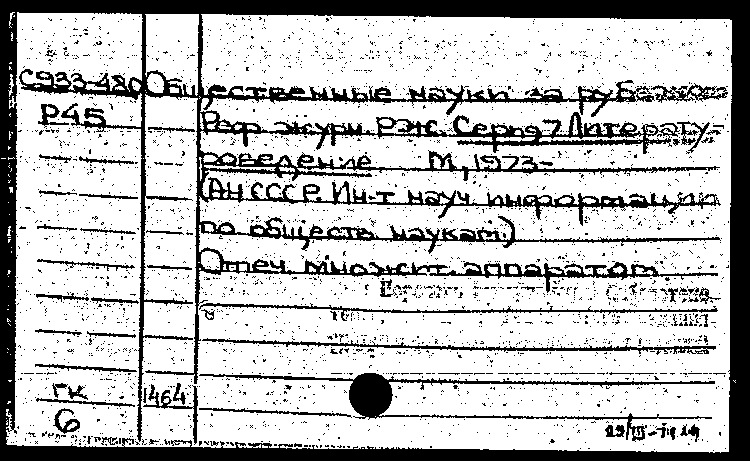 С933-480 Общественные науки за рубежом
Р45 Реф. журн. РЖ. Серия 7 Литерату-
роведение М, 1973-
(АН СССР. Ин-т науч. информации
по обществ. наукам)
Отеч. множит. аппаратом
гк 1464
6